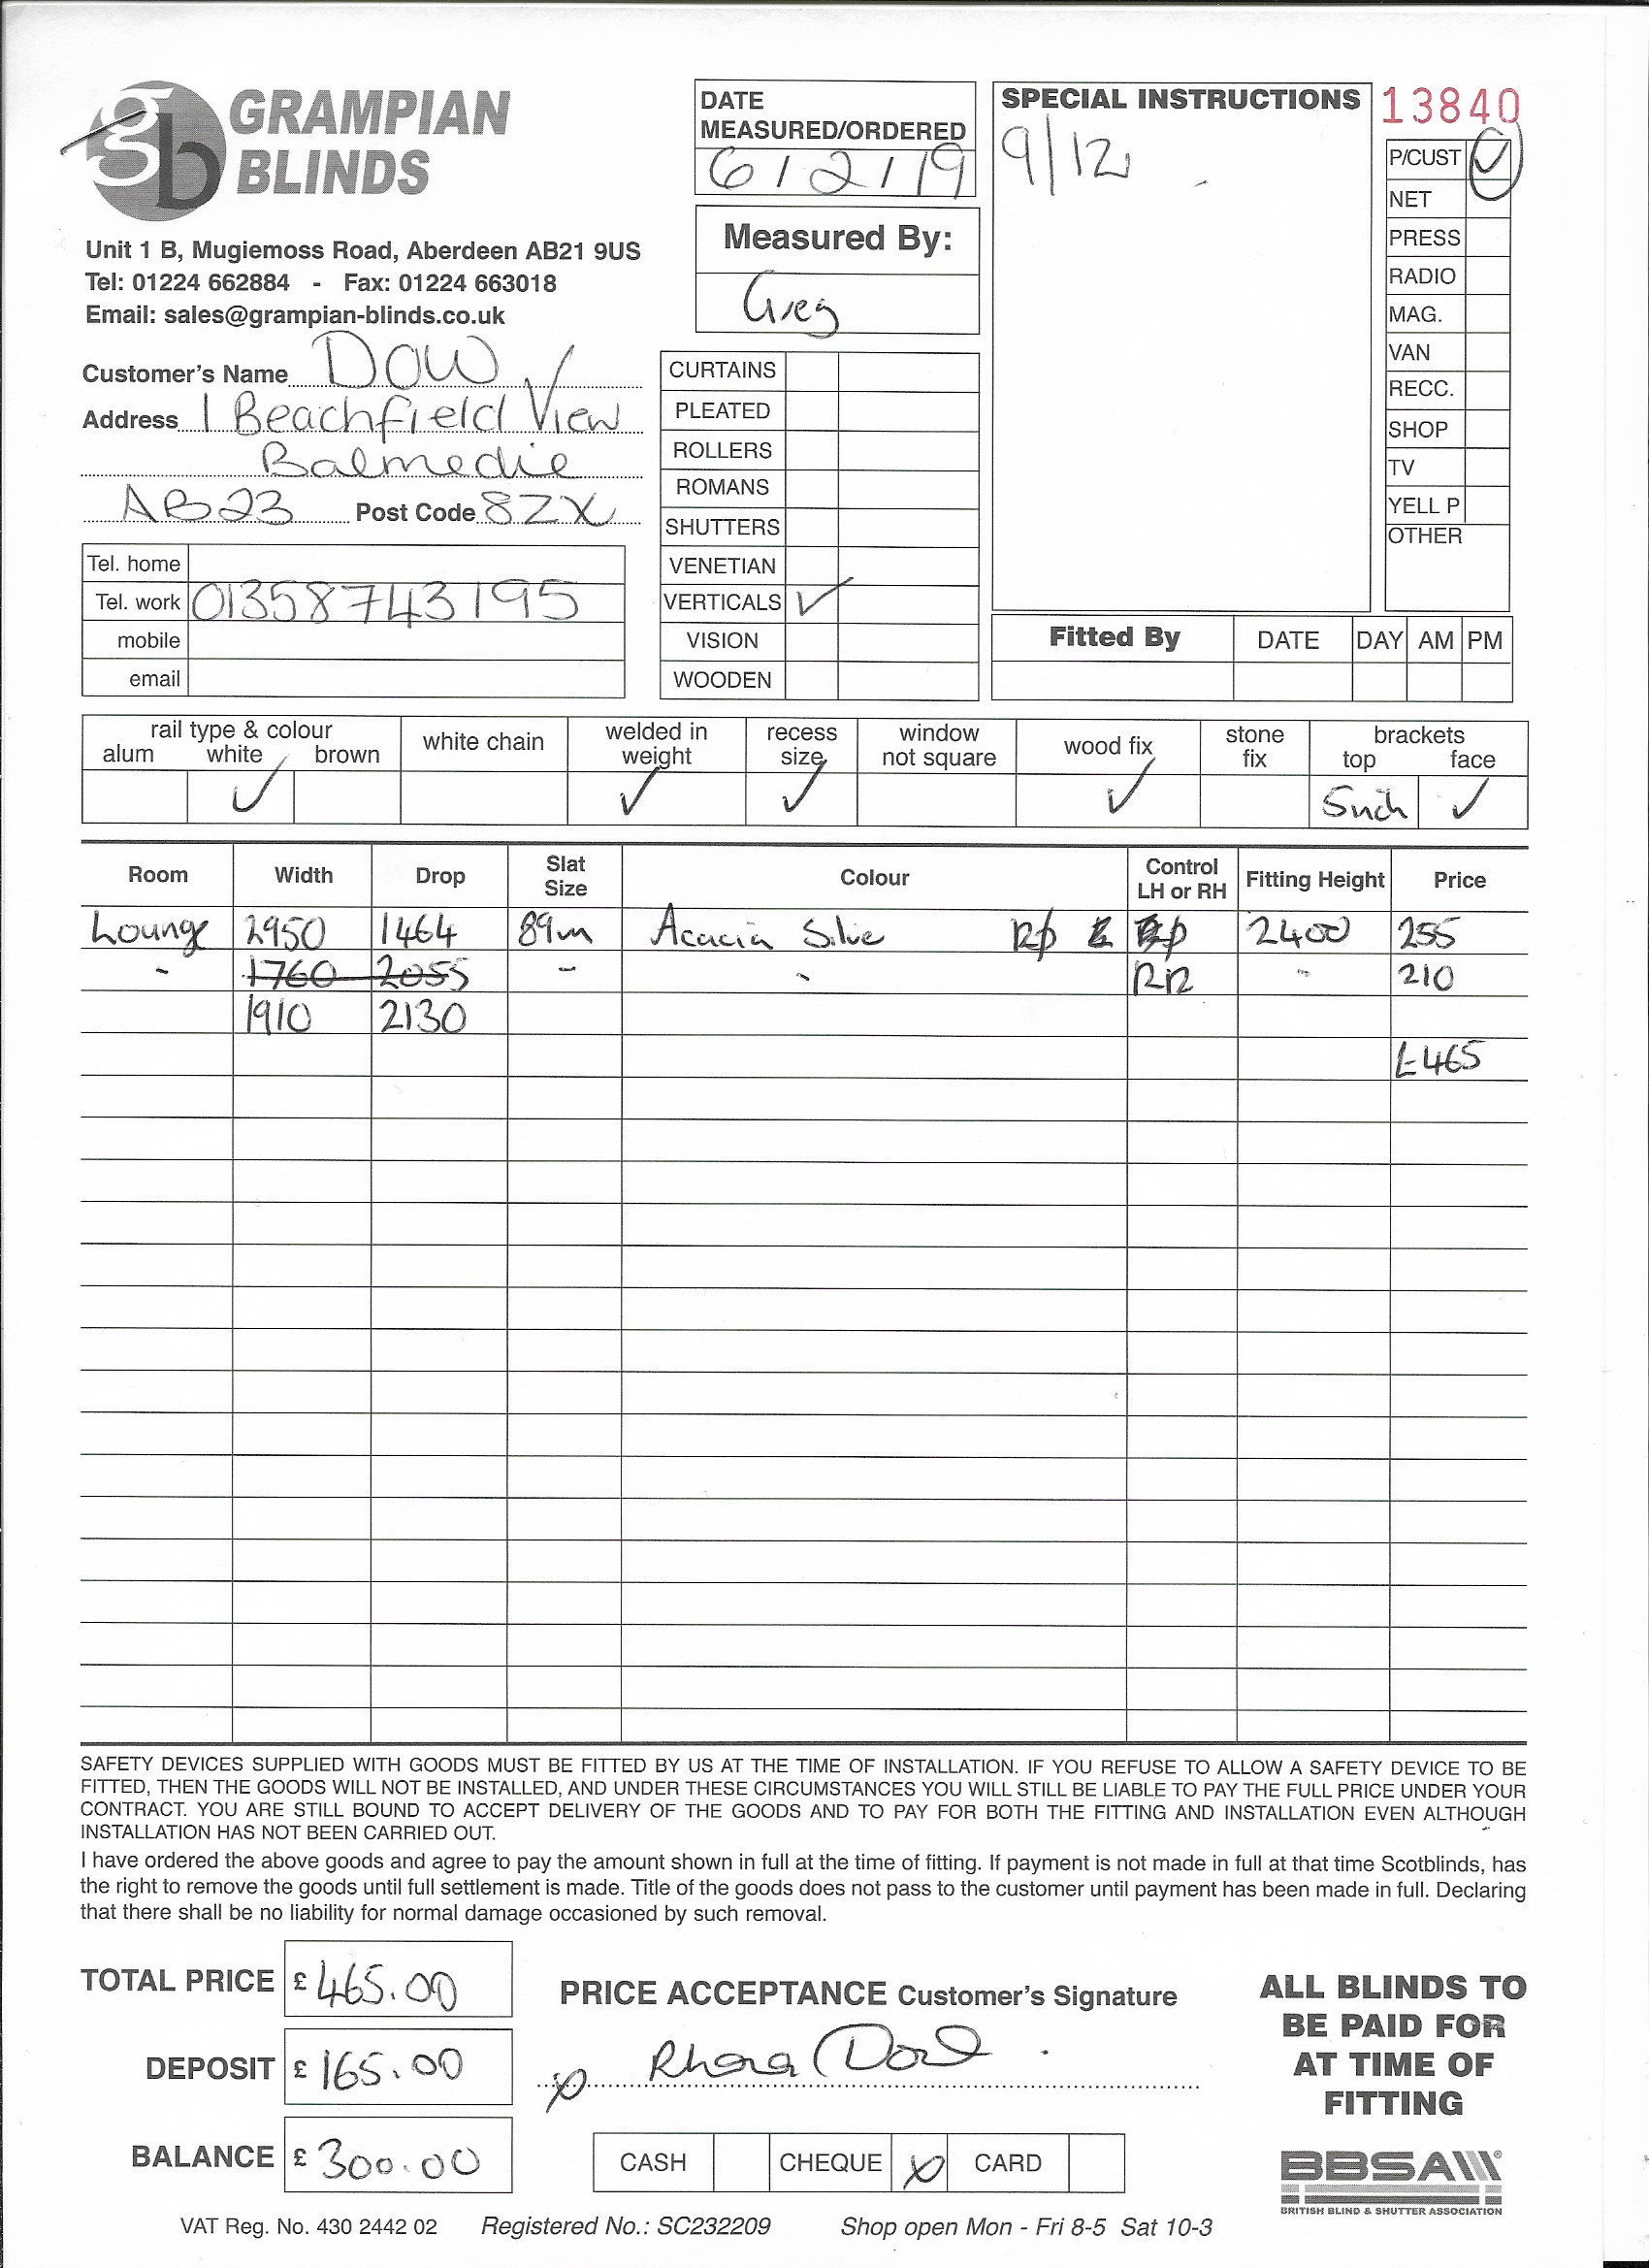 gb GRAMPIAN BLINDS
Unit 1 B, Mugiemoss Road, Aberdeen AB21 9US
Tel: 01224 662884 - Fax: 01224 663018
Email: sales@grampian-blinds.co.uk
Customer's Name DOW
Address 1 Beachfield View
Balmedie
AB23 Post Code 8ZX
Tel. home
Tel. work 01358743195
mobile
email
DATE
MEASURED/ORDERED
6/2/19
Measured By:
Greg
CURTAINS
PLEATED
ROLLERS
ROMANS
SHUTTERS
VENETIAN
VERTICALS ✓
VISION
WOODEN
SPECIAL INSTRUCTIONS
9/12
13840
P/CUST ✓
NET
PRESS
RADIO
MAG.
VAN
RECC.
SHOP
TV
YELL P
OTHER
Fitted By DATE DAY AM PM
rail type & colour
alum white brown
white chain
welded in weight
recess size
window not square
wood fix
stone fix
brackets
top face
✓ ✓ ✓ ✓ 5inch ✓
Room Width Drop Slat Size Colour Control LH or RH Fitting Height Price
Lounge 2950 1464 89m Acacia Silve 2400 255
1760 2055 RR 210
1910 2130
£465
SAFETY DEVICES SUPPLIED WITH GOODS MUST BE FITTED BY US AT THE TIME OF INSTALLATION. IF YOU REFUSE TO ALLOW A SAFETY DEVICE TO BE
FITTED, THEN THE GOODS WILL NOT BE INSTALLED, AND UNDER THESE CIRCUMSTANCES YOU WILL STILL BE LIABLE TO PAY THE FULL PRICE UNDER YOUR
CONTRACT. YOU ARE STILL BOUND TO ACCEPT DELIVERY OF THE GOODS AND TO PAY FOR BOTH THE FITTING AND INSTALLATION EVEN ALTHOUGH
INSTALLATION HAS NOT BEEN CARRIED OUT.
I have ordered the above goods and agree to pay the amount shown in full at the time of fitting. If payment is not made in full at that time Scotblinds, has
the right to remove the goods until full settlement is made. Title of the goods does not pass to the customer until payment has been made in full. Declaring
that there shall be no liability for normal damage occasioned by such removal.
TOTAL PRICE £ 465.00
DEPOSIT £ 165.00
BALANCE £ 300.00
PRICE ACCEPTANCE Customer's Signature
x Rhona Dow
CASH CHEQUE x CARD
ALL BLINDS TO
BE PAID FOR
AT TIME OF
FITTING
BBSA
BRITISH BLIND & SHUTTER ASSOCIATION
VAT Reg. No. 430 2442 02 Registered No.: SC232209 Shop open Mon - Fri 8-5 Sat 10-3